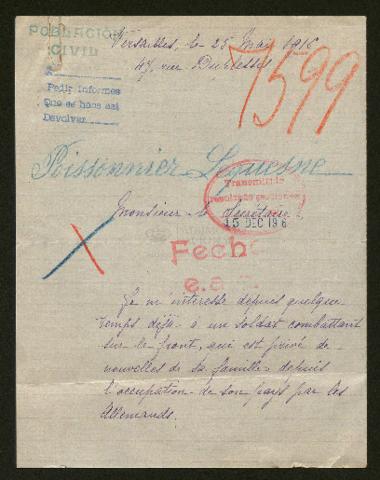 POBLACIÓN
CIVIL
Versailles, le 25 Mai 1916
47, rue Duplessis
7599
Pedir informes
Que se hace así
Devolver
Poissonnier Lequesne
Transmitir
resultado gestiones
Monsieur le Secrétaire
15 DEC 196
Fecho
Je m'intéresse depuis quelque
temps déjà à un soldat combattant
sur le front, qui est privé de
nouvelles de sa famille depuis
l'occupation de son pays par les
Allemands.